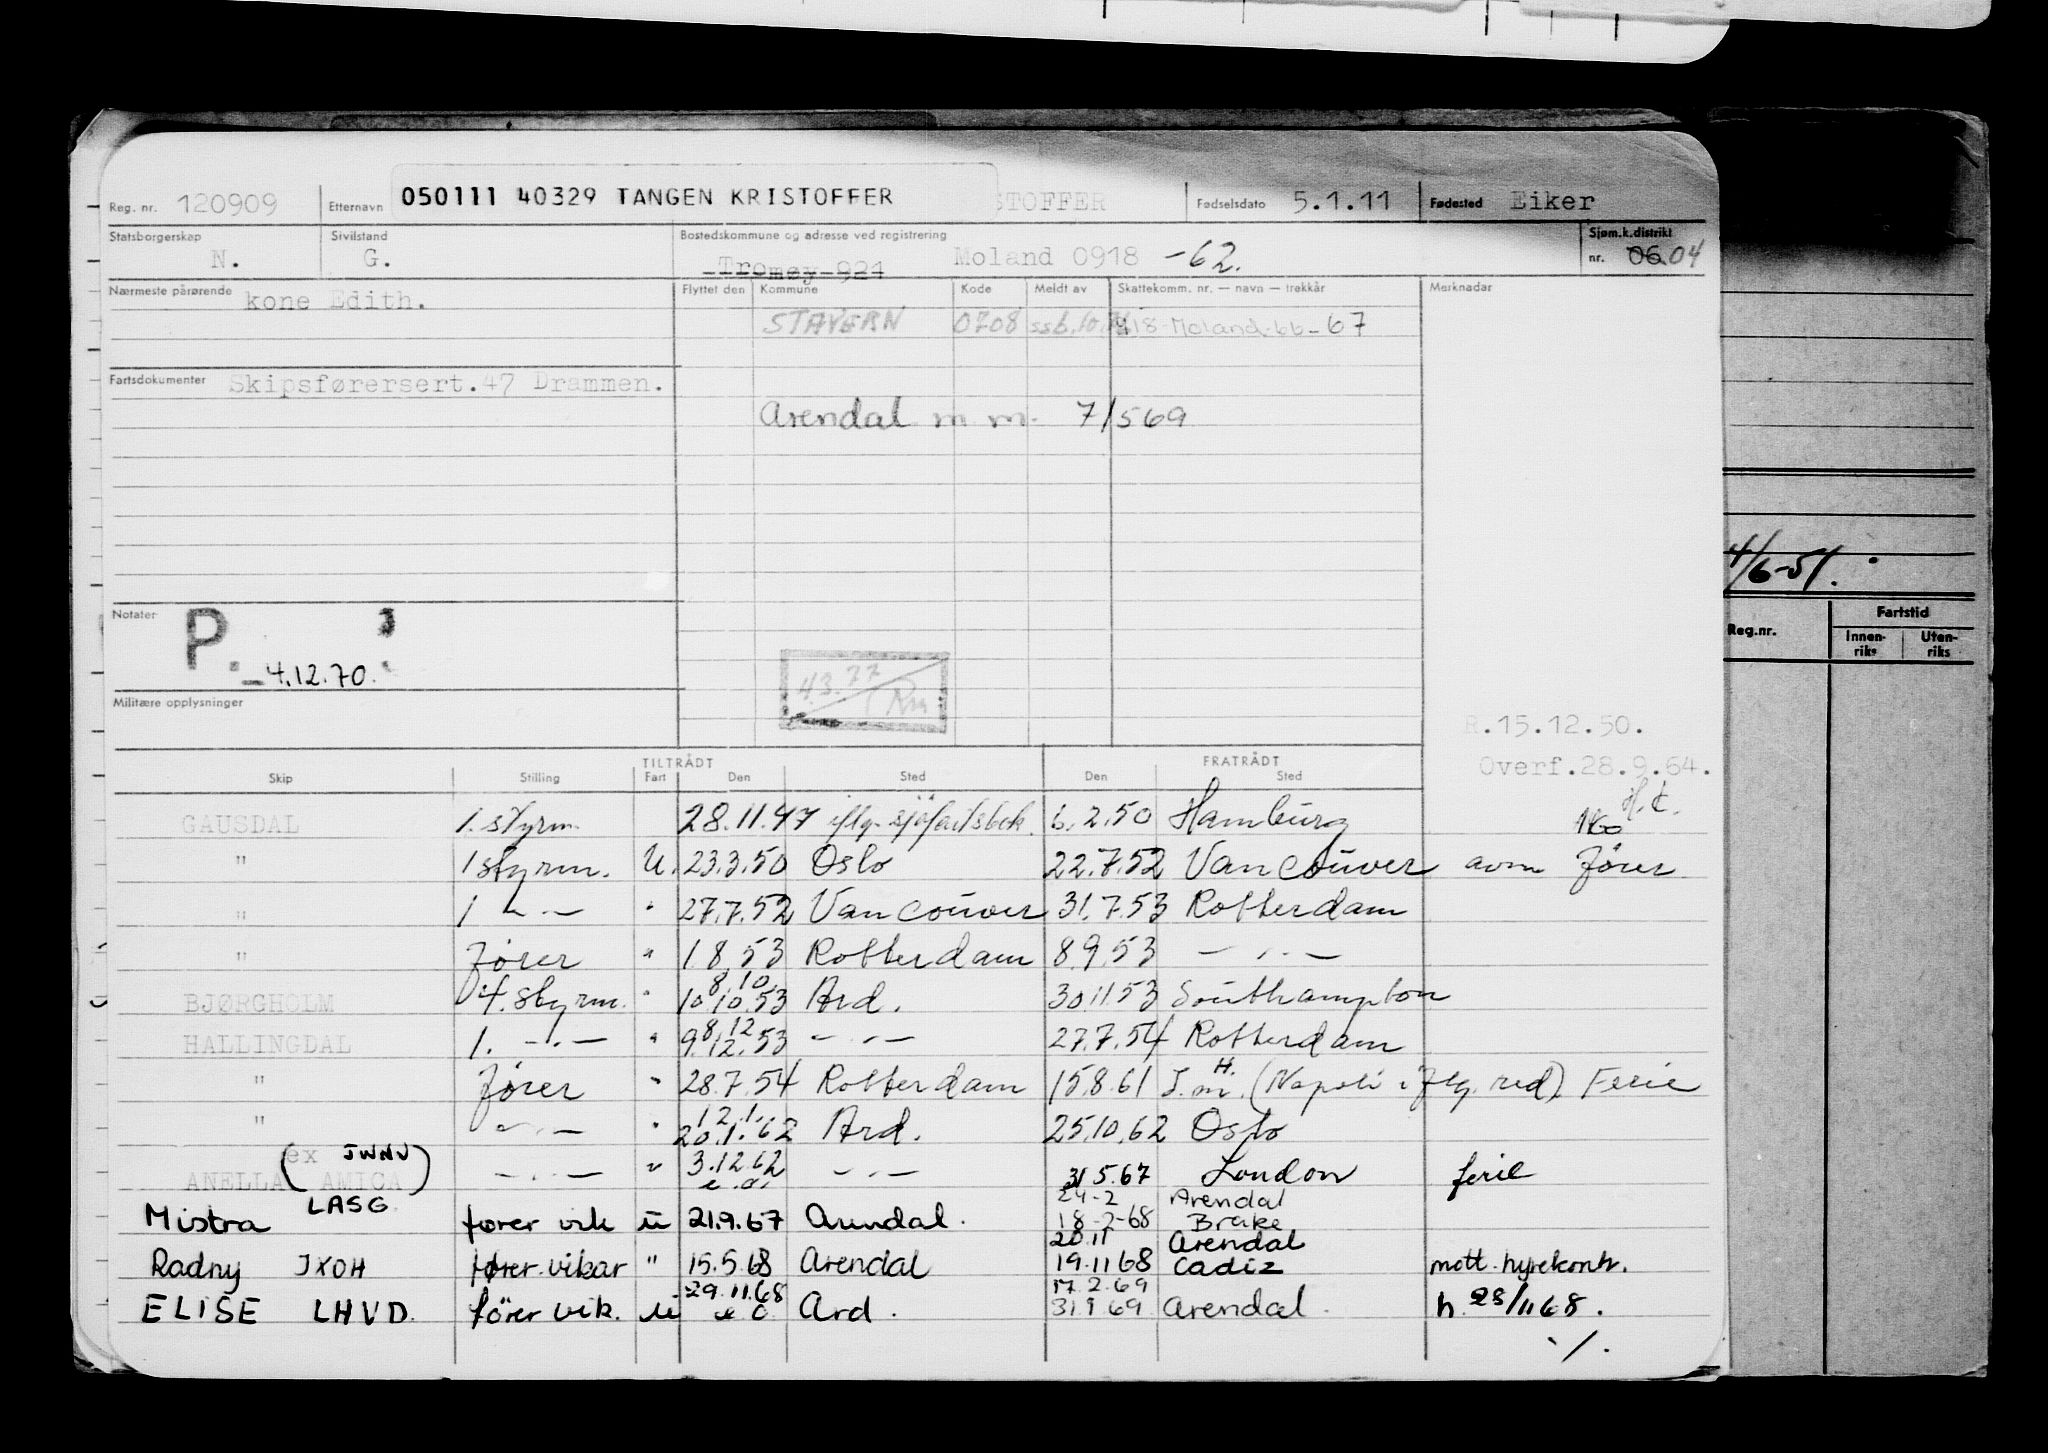 Reg. nr. 120909 Etternavn 050111 40329 TANGEN KRISTOFFER STOFFER Fødselsdato 5.1.11 Fødested Eiker
Statsborgerskap N. Sivilstand G. Bostedskommune og adresse ved registrering Tromøy 924 Moland 0918 -62. Sjøm.k.distrikt nr. 06 04
Nærmeste pårørende kone Edith. Flyttet den Kommune Kode Meldt av Skattekomm. nr. — navn — trekkår Merknader
STAVERN 0708 918-Moland-66-67
Fartsdokumenter Skipsførersert.47 Drammen.
Arendal m m. 7/569
4/6-51.
Reg.nr. Fartstid
Innen-riks Uten-riks
Notater P.
4.12.70.
4.3.77
Militære opplysninger
R.15.12.50.
Overf.28.9.64.
TILTRÅDT FRATRÅDT
Skip Stilling Fart Den Sted Den Sted
GAUSDAL 1. styrm. 28.11.47 iflg. sjøfartsbok. 6.2.50 Hamburg
" 1 styrm. U. 23.3.50 Oslo 22.7.52 Vancouver avm Fører
" 1 — " — " 27.7.52 Vancouver 31.7.53 Rotterdam
" Fører " 1.8.53 Rotterdam 8.9.53 — " —
8.10.
BJØRGHOLM 1. styrm. " 10.10.53 Ard. 30.11.53 Southampton
8.12
HALLINGDAL 1. — " — " 9.12.53 — " — 27.7.54 Rotterdam
" Fører " 28.7.54 Rotterdam 15.8.61 H. (Napoli iflg. red) Ferie
12.1.
" — " — " 20.1.62 Ard. 25.10.62 Oslo
ANELLA (ex AMICA JWNV) — " — " 3.12.62 — " — 31.5.67 London ferie
24-2 Arendal
Mistra LASG fører vik u 21.9.67 Arendal. 18-2-68 Brake
20.11 Arendal
Radny JXOH fører vikar " 15.5.68 Arendal 19.11 68 Cadiz mott. hyrekontr.
29.11.68 17.2.69
ELISE LHVD. fører vik. u Ard. 31.1 69 Arendal. h. 28/11 68.
./.